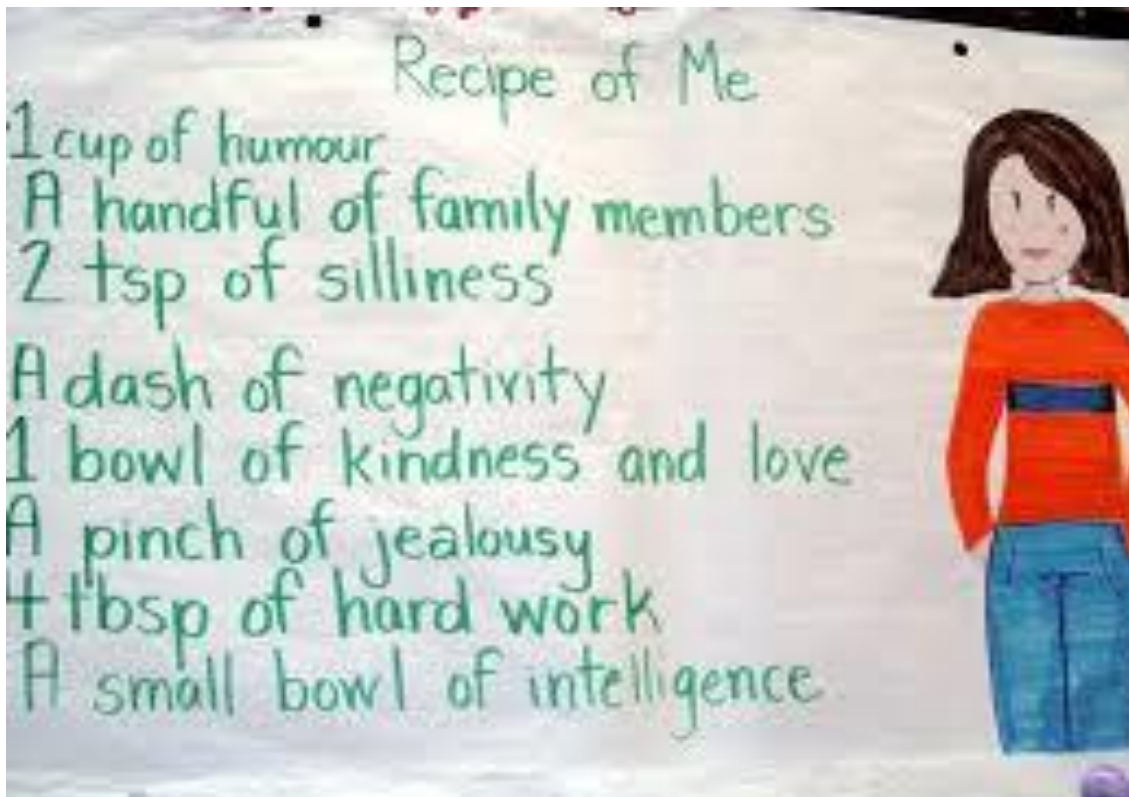 Recipe of Me
1 cup of humour
A handful of family members
2 tsp of silliness
A dash of negativity
1 bowl of kindness and love
A pinch of jealousy
tbsp of hard work
A small bowl of intelligence